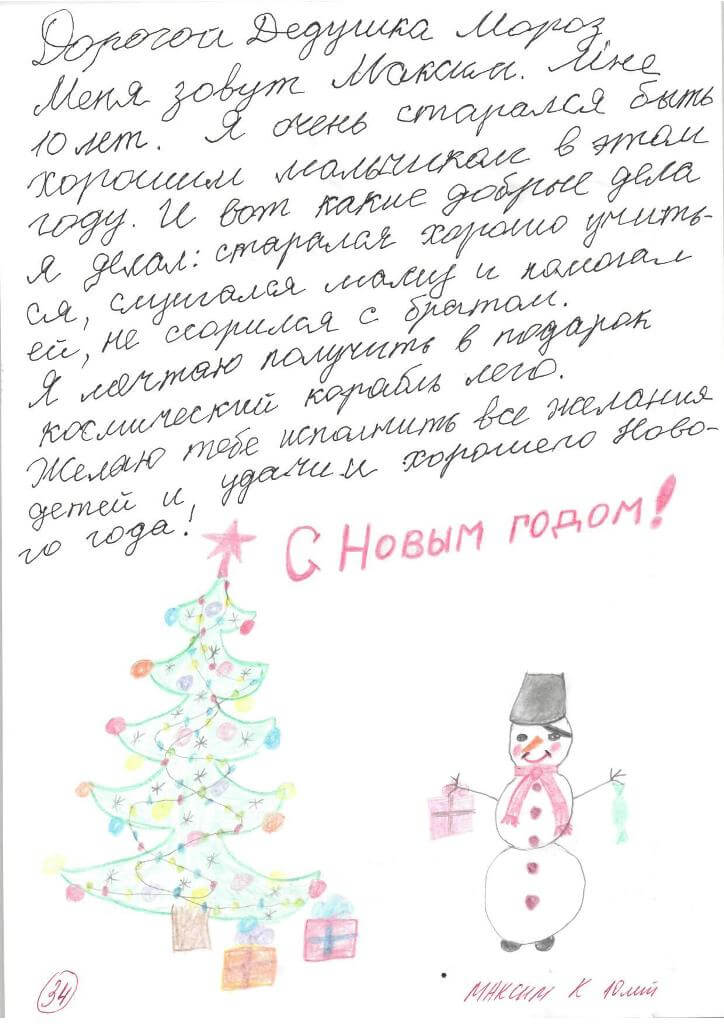 Дорогой Дедушка Мороз
Меня зовут Максим. Мне
10 лет. Я очень старался быть
хорошим мальчиком в этом
году. И вот какие добрые дела
я делал: старался хорошо учить-
ся, слушался маму и помогал
ей, не ссорился с братом.
Я мечтаю получить в подарок
космический корабль лего.
Желаю тебе исполнить все желания
детей и удачи и хорошего Ново-
го года!
С Новым годом!
34
Максим К 10 лет